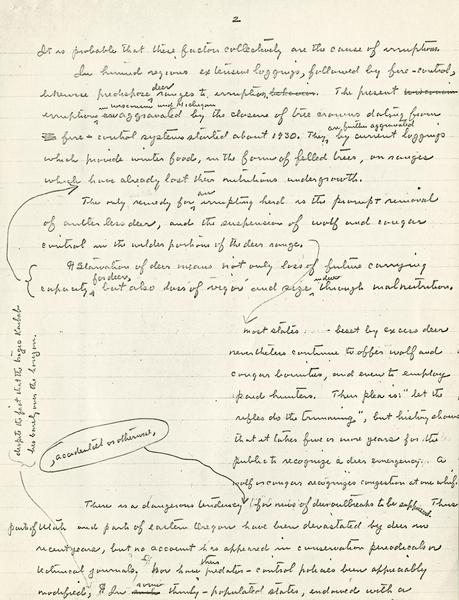 2
It is probable that these factors collectively are the cause of irruptions.
In humid regions extensive loggings, followed by fire-control,
deer
likewise predispose ranges to irruption behavior. The present
in Wisconsin and Michigan
irruptions aggravated by the closure of tree crowns dating from
are further aggravated
fire-control systems started about 1930. They by current loggings
which provide winter food, in the form of felled trees, on ranges
which have already lost their nutritious undergrowth.
an
The only remedy for irrupting herd is the prompt removal
of antlerless deer, and the suspension of wolf and cougar
control in the wilder portions of the deer range.
¶ Starvation of deer means not only loss of future carrying
for deer,
capacity, but also loss of vigor and size through malnutrition.
most states beset by excess deer
nevertheless continue to offer wolf and
cougar bounties, and even to employ
paid hunters. Their plea is: "let the
rifles do the trimming", but history shows
that it takes five or more years for the
public to recognize a deer emergency. A
wolf or cougar recognizes congestion at one whiff.
despite the fact that the tragic Kaibab
lies barely over the horizon.
, accidental or otherwise,
There is a dangerous tendency for news of deer outbreaks to be suppressed. Thus
parts of Utah and parts of eastern Oregon have been devastated by deer in
recent years, but no account has appeared in conservation periodicals or
botanical journals. Nor have predator-control policies been appreciably
thus
modified. ¶ In some thinly-populated states, endowed with a